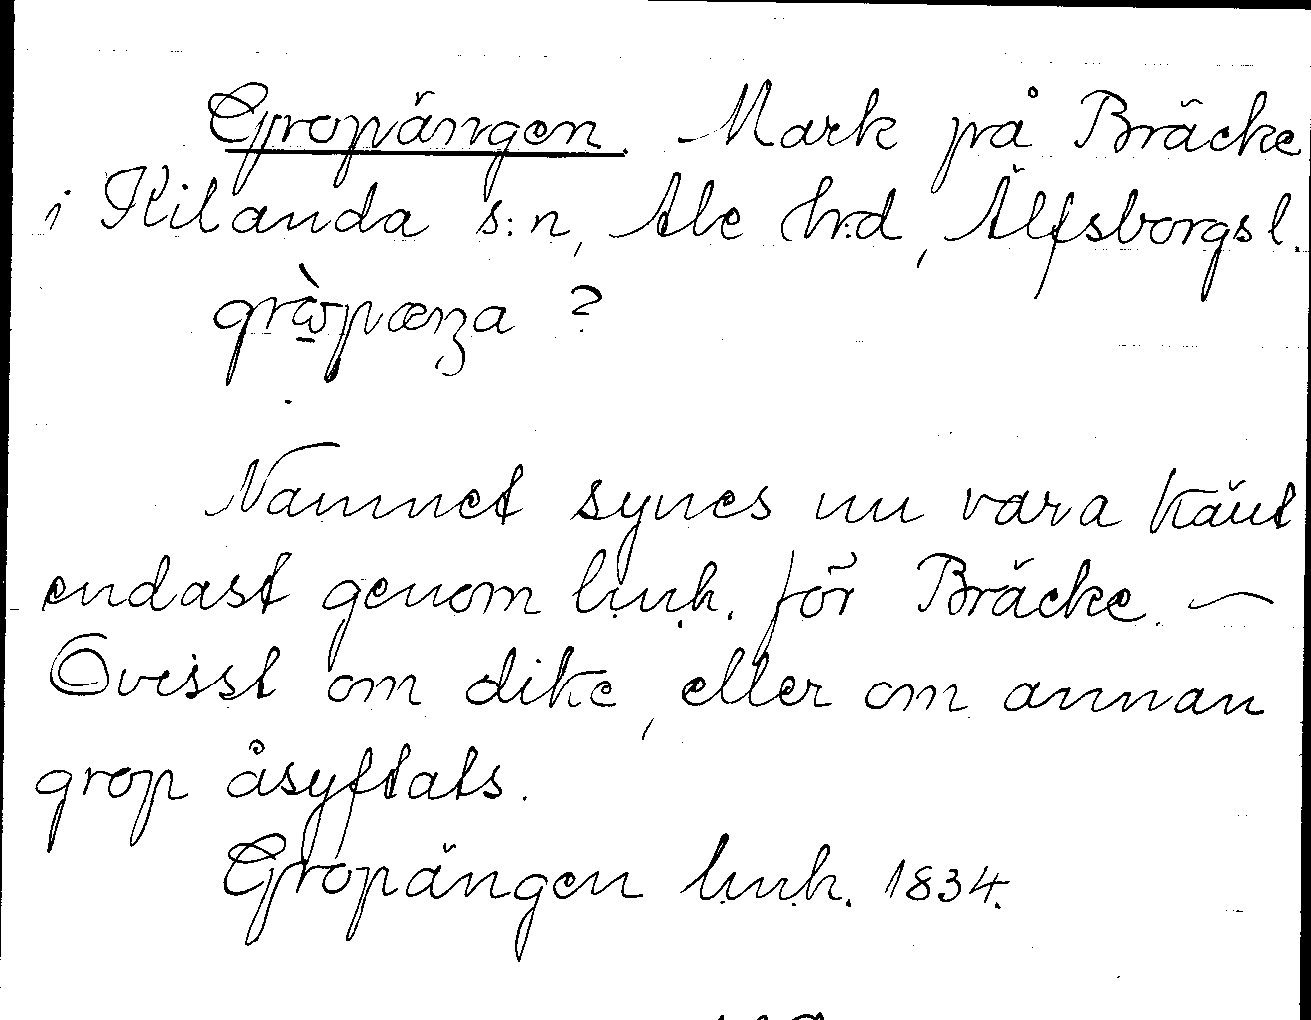 Gropängen. Mark på Bräcke
i Kilanda s:n, Ale h:d, Älfsborgs l.
grɷ̀pæŋa ?
Namnet synes nu vara känt
endast genom lm.h. för Bräcke. —
Ovisst om dike, eller om annan
grop åsyftats.
Gropängen lm.h. 1834.